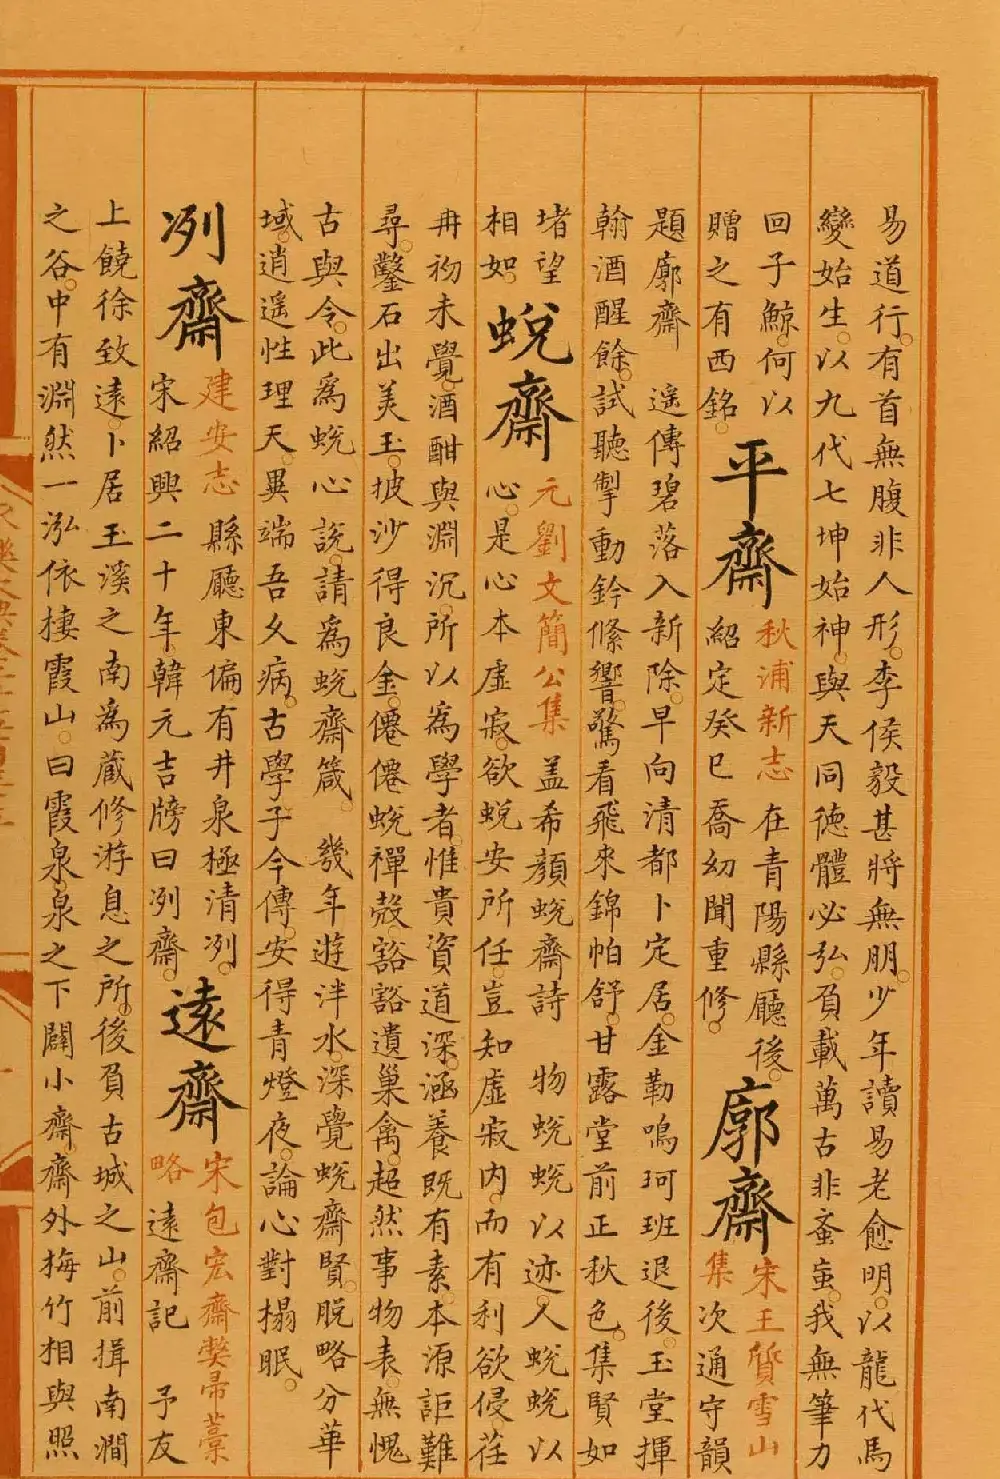 易道行有首無腹非人形李侯毅甚將無朋少年讀易老愈明以龍代馬
變始生以九代七坤始神與天同德體必弘負載萬古非蚤䖟我無筆力
回子鯨何以
贈之有西銘
平齋
秋浦新志 在青陽縣廳後
紹定癸巳喬幼聞重修
廓齋
宋王質雪山
集 次通守韻
題廓齋 遥傳碧落入新除早向清都卜定居金勒鳴珂班退後玉堂揮
翰酒醒餘試聽掣動鈴絛響驚看飛來錦帕舒甘露堂前正秋色集賢如
堵望
相如
蛻齋
元劉文簡公集 盖希顏蛻齋詩 物蛻蛻以迹人蛻蛻以
心是心本虛寂欲蛻安所任豈知虛寂内而有利欲侵荏
冉初未覺酒酣與淵沉所以為學者惟貴資道深涵養既有素本源詎難
尋鑿石出美玉披沙得良金僊僊蛻禪殼豁豁遺巢禽超然事物表無愧
古與今此爲蛻心說請爲蛻齋箴 幾年遊泮水深覺蛻齋賢脱略分華
域逍遥性理天異端吾久病古學子今傳安得青燈夜論心對榻眠
冽齋
建安志 縣廳東偏有井泉極清冽
宋紹興二十年韓元吉牓曰冽齋
遠齋
宋包宏齋弊帚藁
略 遠齋記 予友
上饒徐致遠卜居玉溪之南爲藏修游息之所後負古城之山前揖南澗
之谷中有淵然一泓依棲霞山曰霞泉泉之下闢小齋齋外梅竹相與照